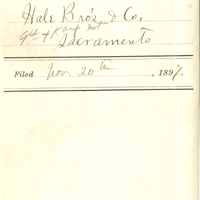 Hale Bro's & Co.
9th & K and
Sacramento
Filed Nov 20th, 1897.